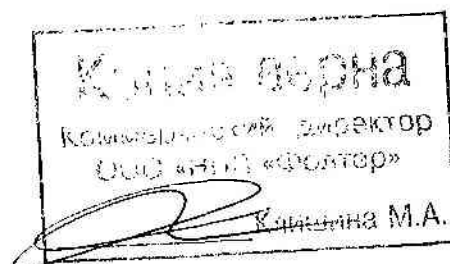 Копия верна
Коммерческий директор
ООО «НПП «Фолтер»
Клишина М.А.